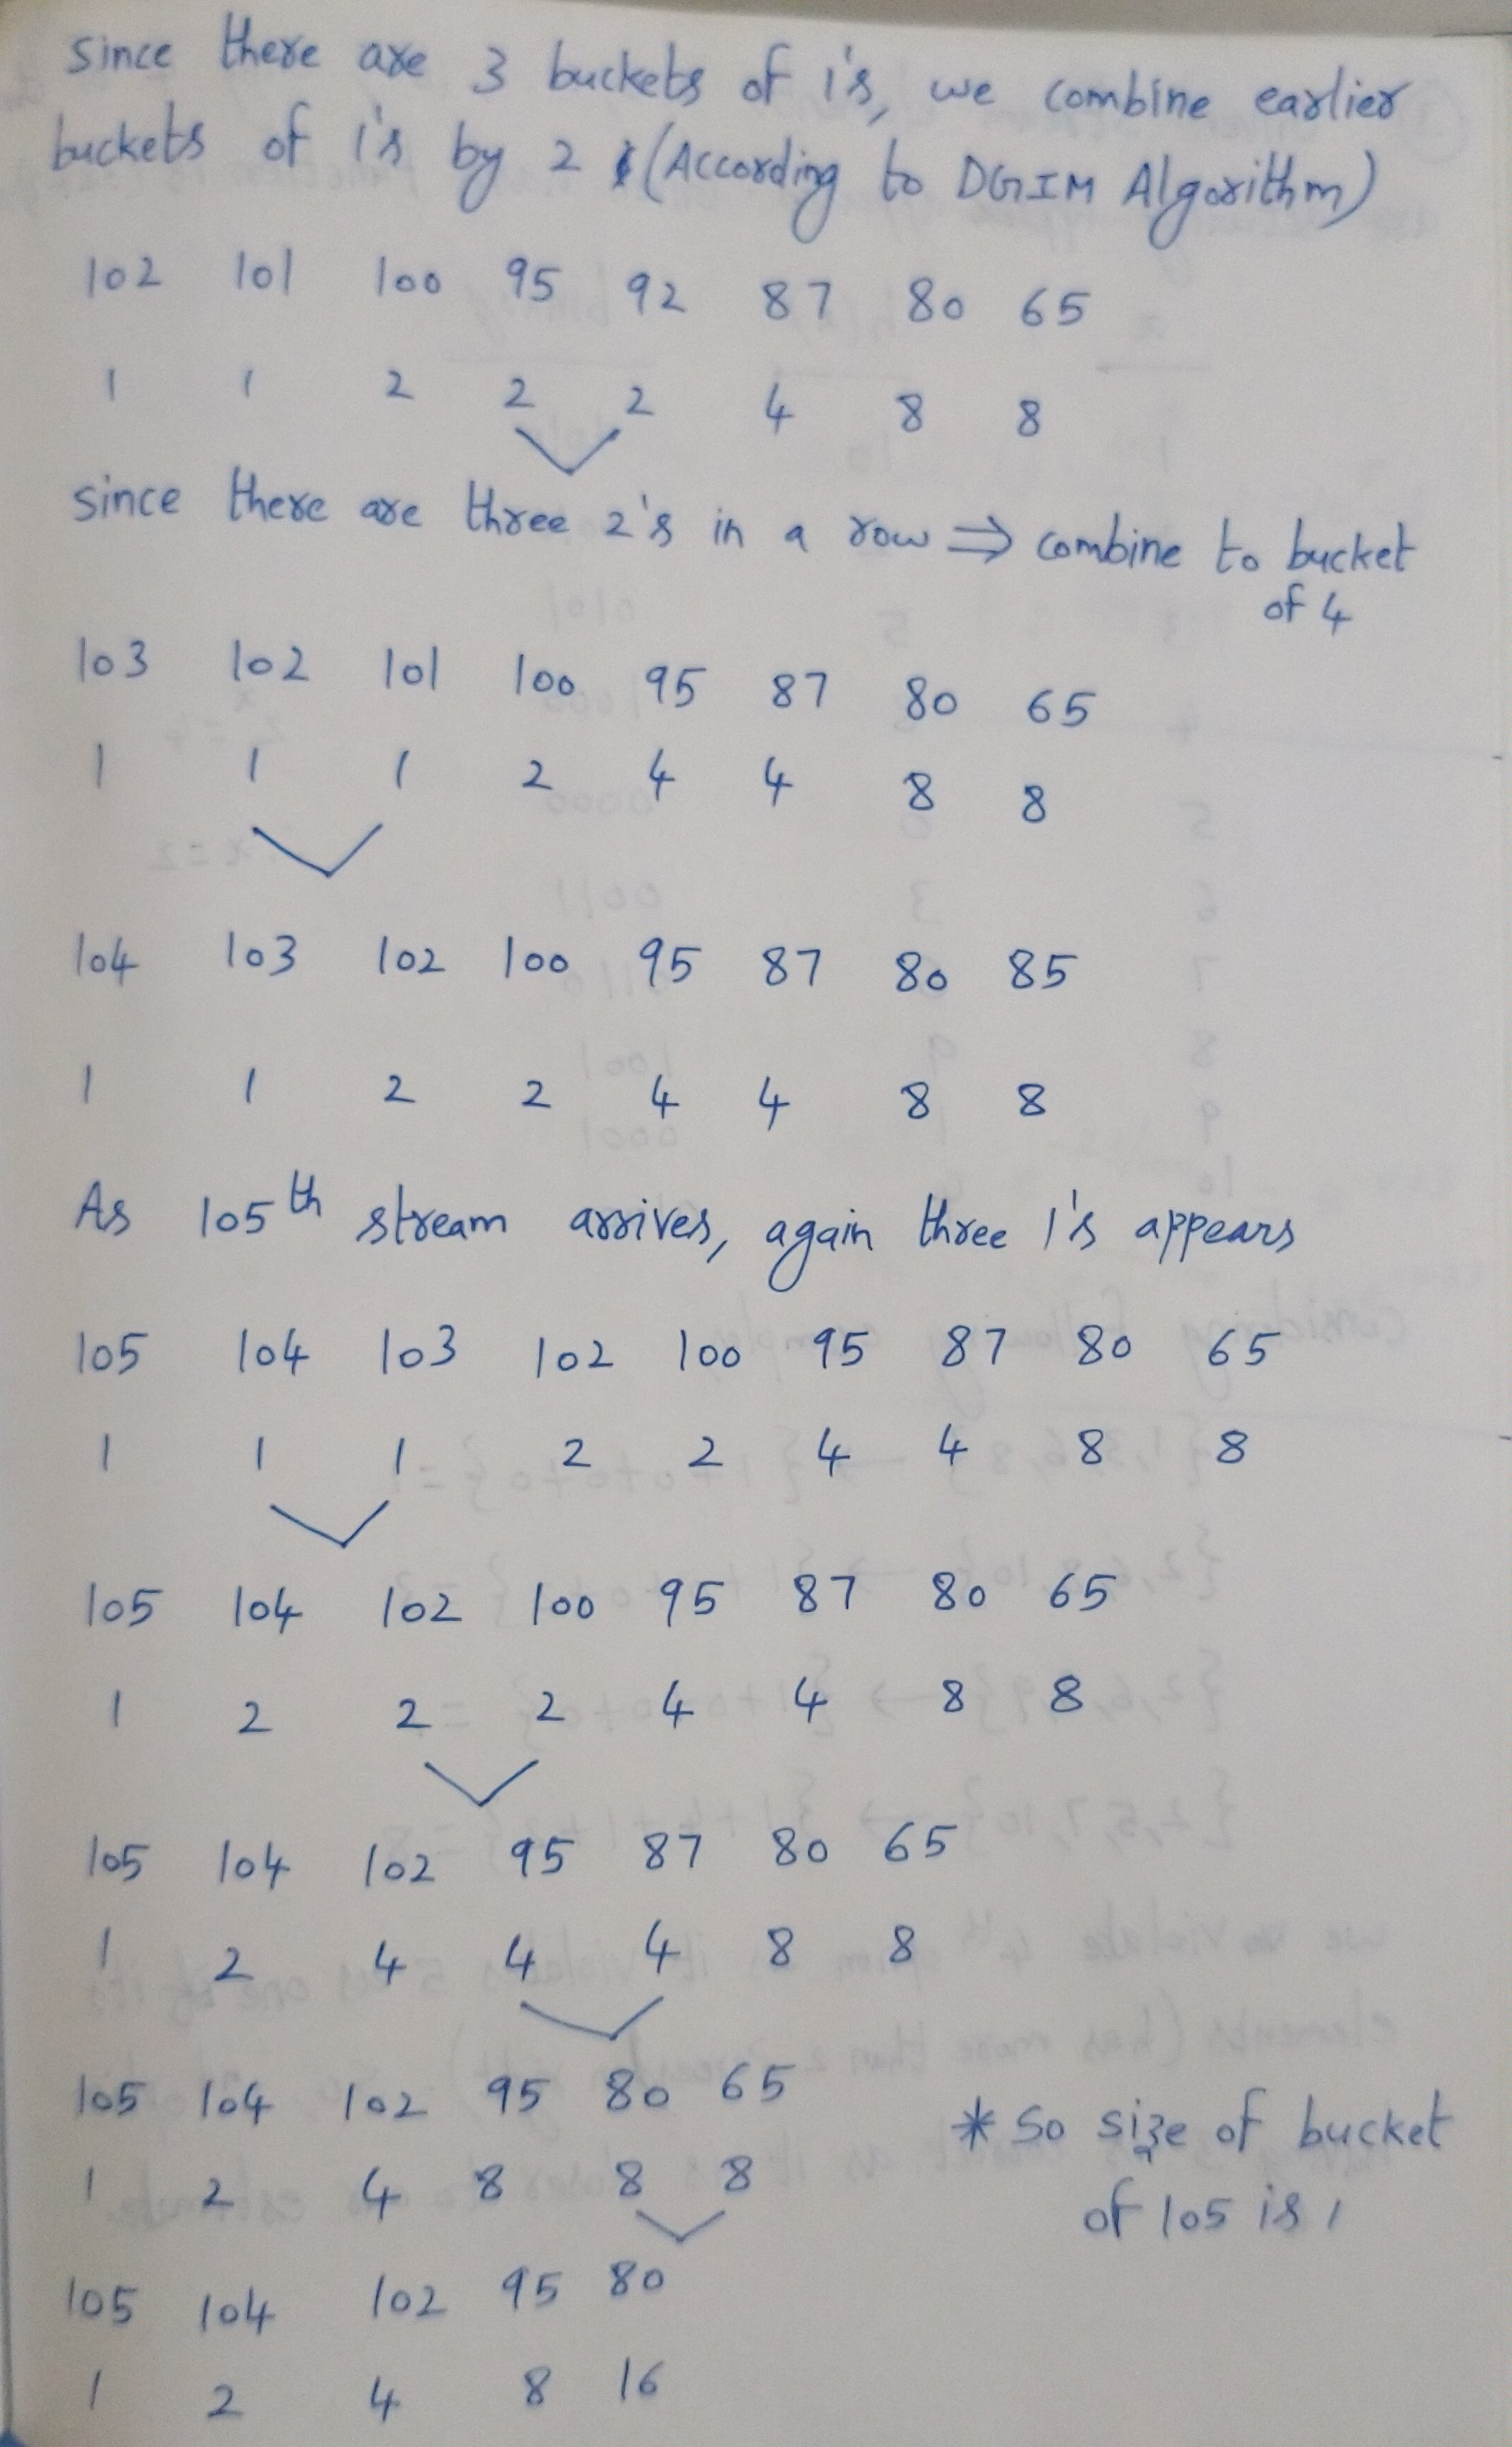 since there are 3 buckets of 1's, we combine earlier
buckets of 1's by 2 (According to DGIM Algorithm)
102 101 100 95 92 87 80 65
1 1 2 2 2 4 8 8
since there are three 2's in a row ⇒ combine to bucket
of 4
103 102 101 100 95 87 80 65
1 1 1 2 4 4 8 8
104 103 102 100 95 87 80 85
1 1 2 2 4 4 8 8
As 105th stream arrives, again three 1's appears
105 104 103 102 100 95 87 80 65
1 1 1 2 2 4 4 8 8
105 104 102 100 95 87 80 65
1 2 2 2 4 4 8 8
105 104 102 95 87 80 65
1 2 4 4 4 8 8
105 104 102 95 80 65
1 2 4 8 8 8
* So size of bucket
of 105 is 1
105 104 102 95 80
1 2 4 8 16